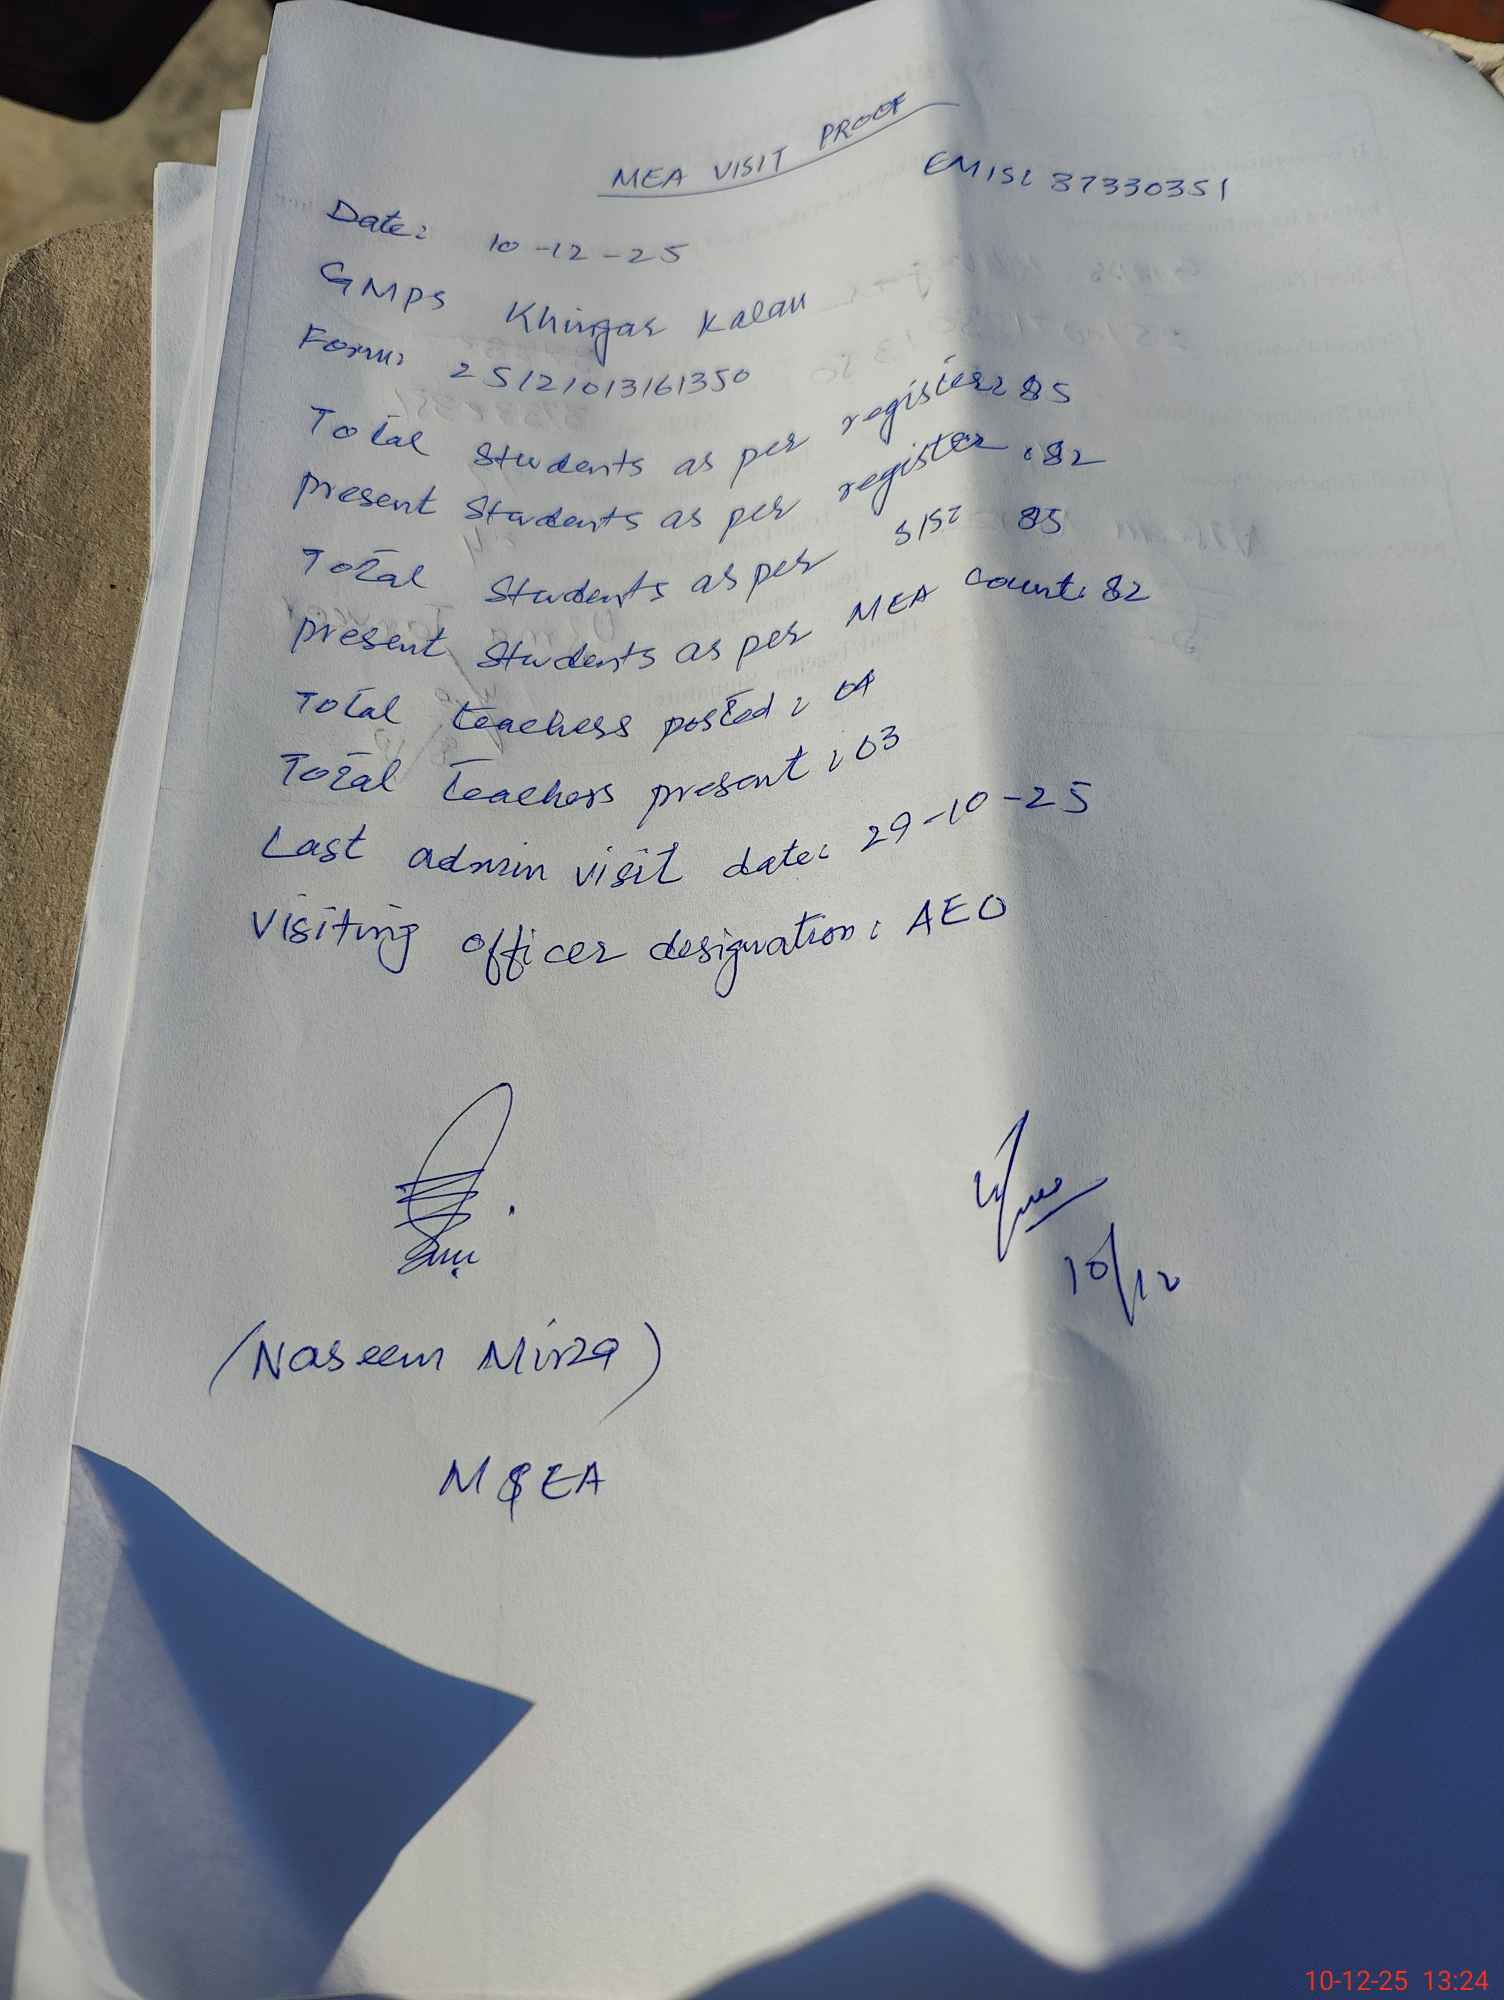 MEA VISIT PROOF
EMIS: 37330351
Date: 10-12-25
GMPS Khingar Kalan
Form: 25121013161350
Total students as per register: 85
present students as per register: 82
Total students as per SIS: 85
present students as per MEA count: 82
Total teachers posted: 04
Total teachers present: 03
Last admin visit date: 29-10-25
Visiting officer designation: AEO
10/12
(Naseem Mirza)
MEA
10-12-25 13:24